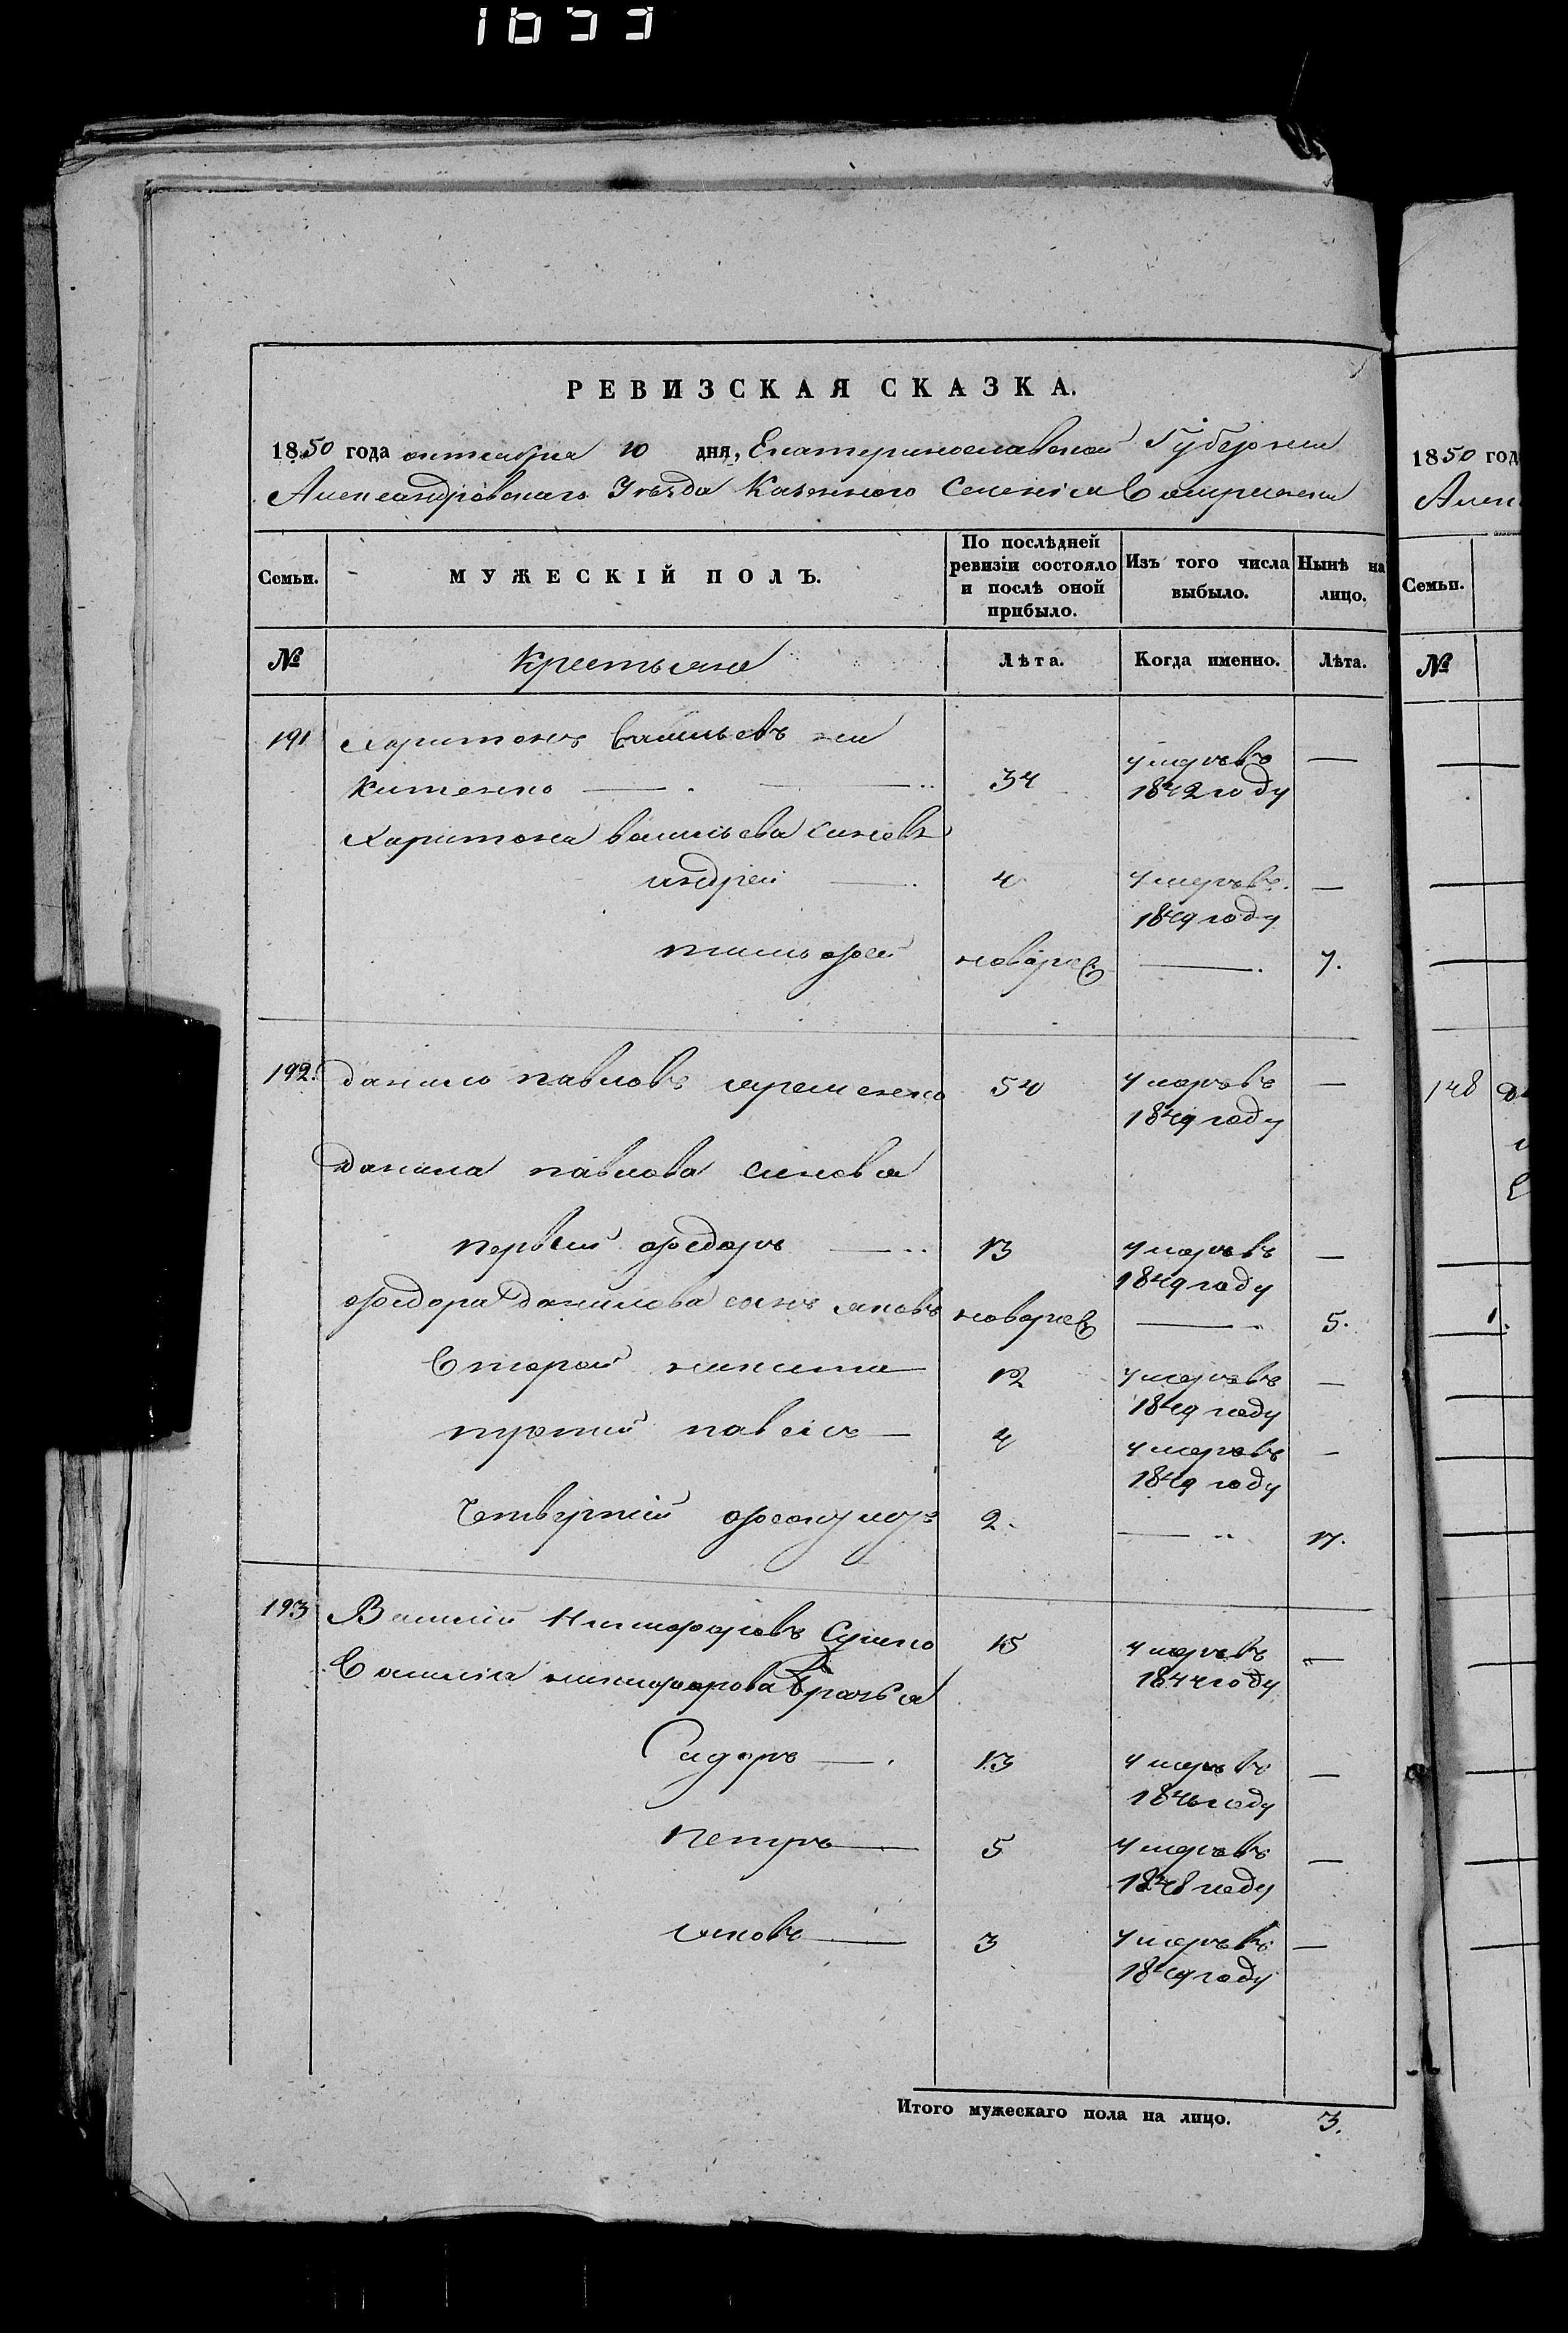 1633
РЕВИЗСКАЯ СКАЗКА.
1850 года октября 10 дня, Екатеринославской Губернии
Александровскаго Уѣзда Казенного Селенія
Семьи. МУЖЕСКІЙ ПОЛЪ. По послѣдней ревизіи состояло и послѣ оной прибыло. Изъ того числа выбыло. Нынѣ на лицо.
№ Крестьяне Лѣта. Когда именно. Лѣта.
191 Харитонъ Васильевъ
34 умеръ въ 1842 году —
Харитона васильева синовя
андрей — 4 умеръ въ 1849 году —
тимофей новорож — 7.
192. данило павловъ 50 умеръ въ 1849 году —
данила павлова синовя
первый федоръ — 13 умеръ въ 1849 году —
федора данилова сынъ яковъ новорож — 5.
Второй никита 12 умеръ въ 1849 году —
третий павелъ — 4 умеръ въ 1849 году —
Четвертий 2. — 17.
193 Василий Никифоровъ 15 умеръ въ 1844 году —
Василия никифорова братья
Сидоръ — 13 умеръ въ 1846 году —
петръ — 5 умеръ въ 1848 году —
яковъ — 3 умеръ въ 1849 году —
Итого мужескаго пола на лицо. 3.
1850 год
Алек
Семьи.
№
148
1.